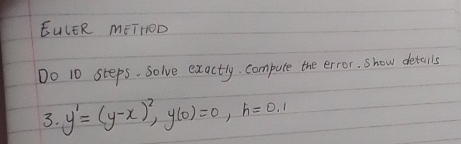 EULER METHOD
Do 10 steps. Solve exactly. Compute the error. Show details
3. y' = (y-x)², y(0)=0, h=0.1